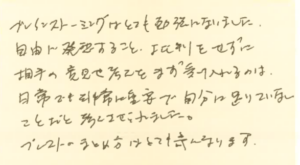 ブレインストーミングはとても勉強になりました。
自由に発想すること、よし判をせずに
相手の意見や考えをまず受け入れるのは、
日常でも非常に重要で自分に足りていない
ことだと考えさせられました。
ブレストのまとめ方はとても為になります。